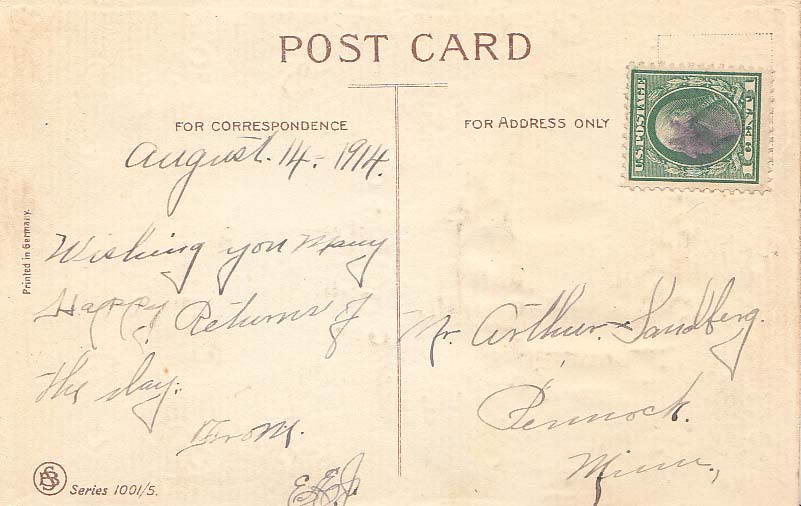 POST CARD
FOR CORRESPONDENCE
FOR ADDRESS ONLY
U.S. POSTAGE
1 CENT 1
August. 14 - 1914.
Wishing you Many
Happy Returns of
the day.
From.
E.E.J.
Mr. Arthur Sandberg.
Pennock.
Minn.,
Printed in Germany.
BS
Series 1001/5.